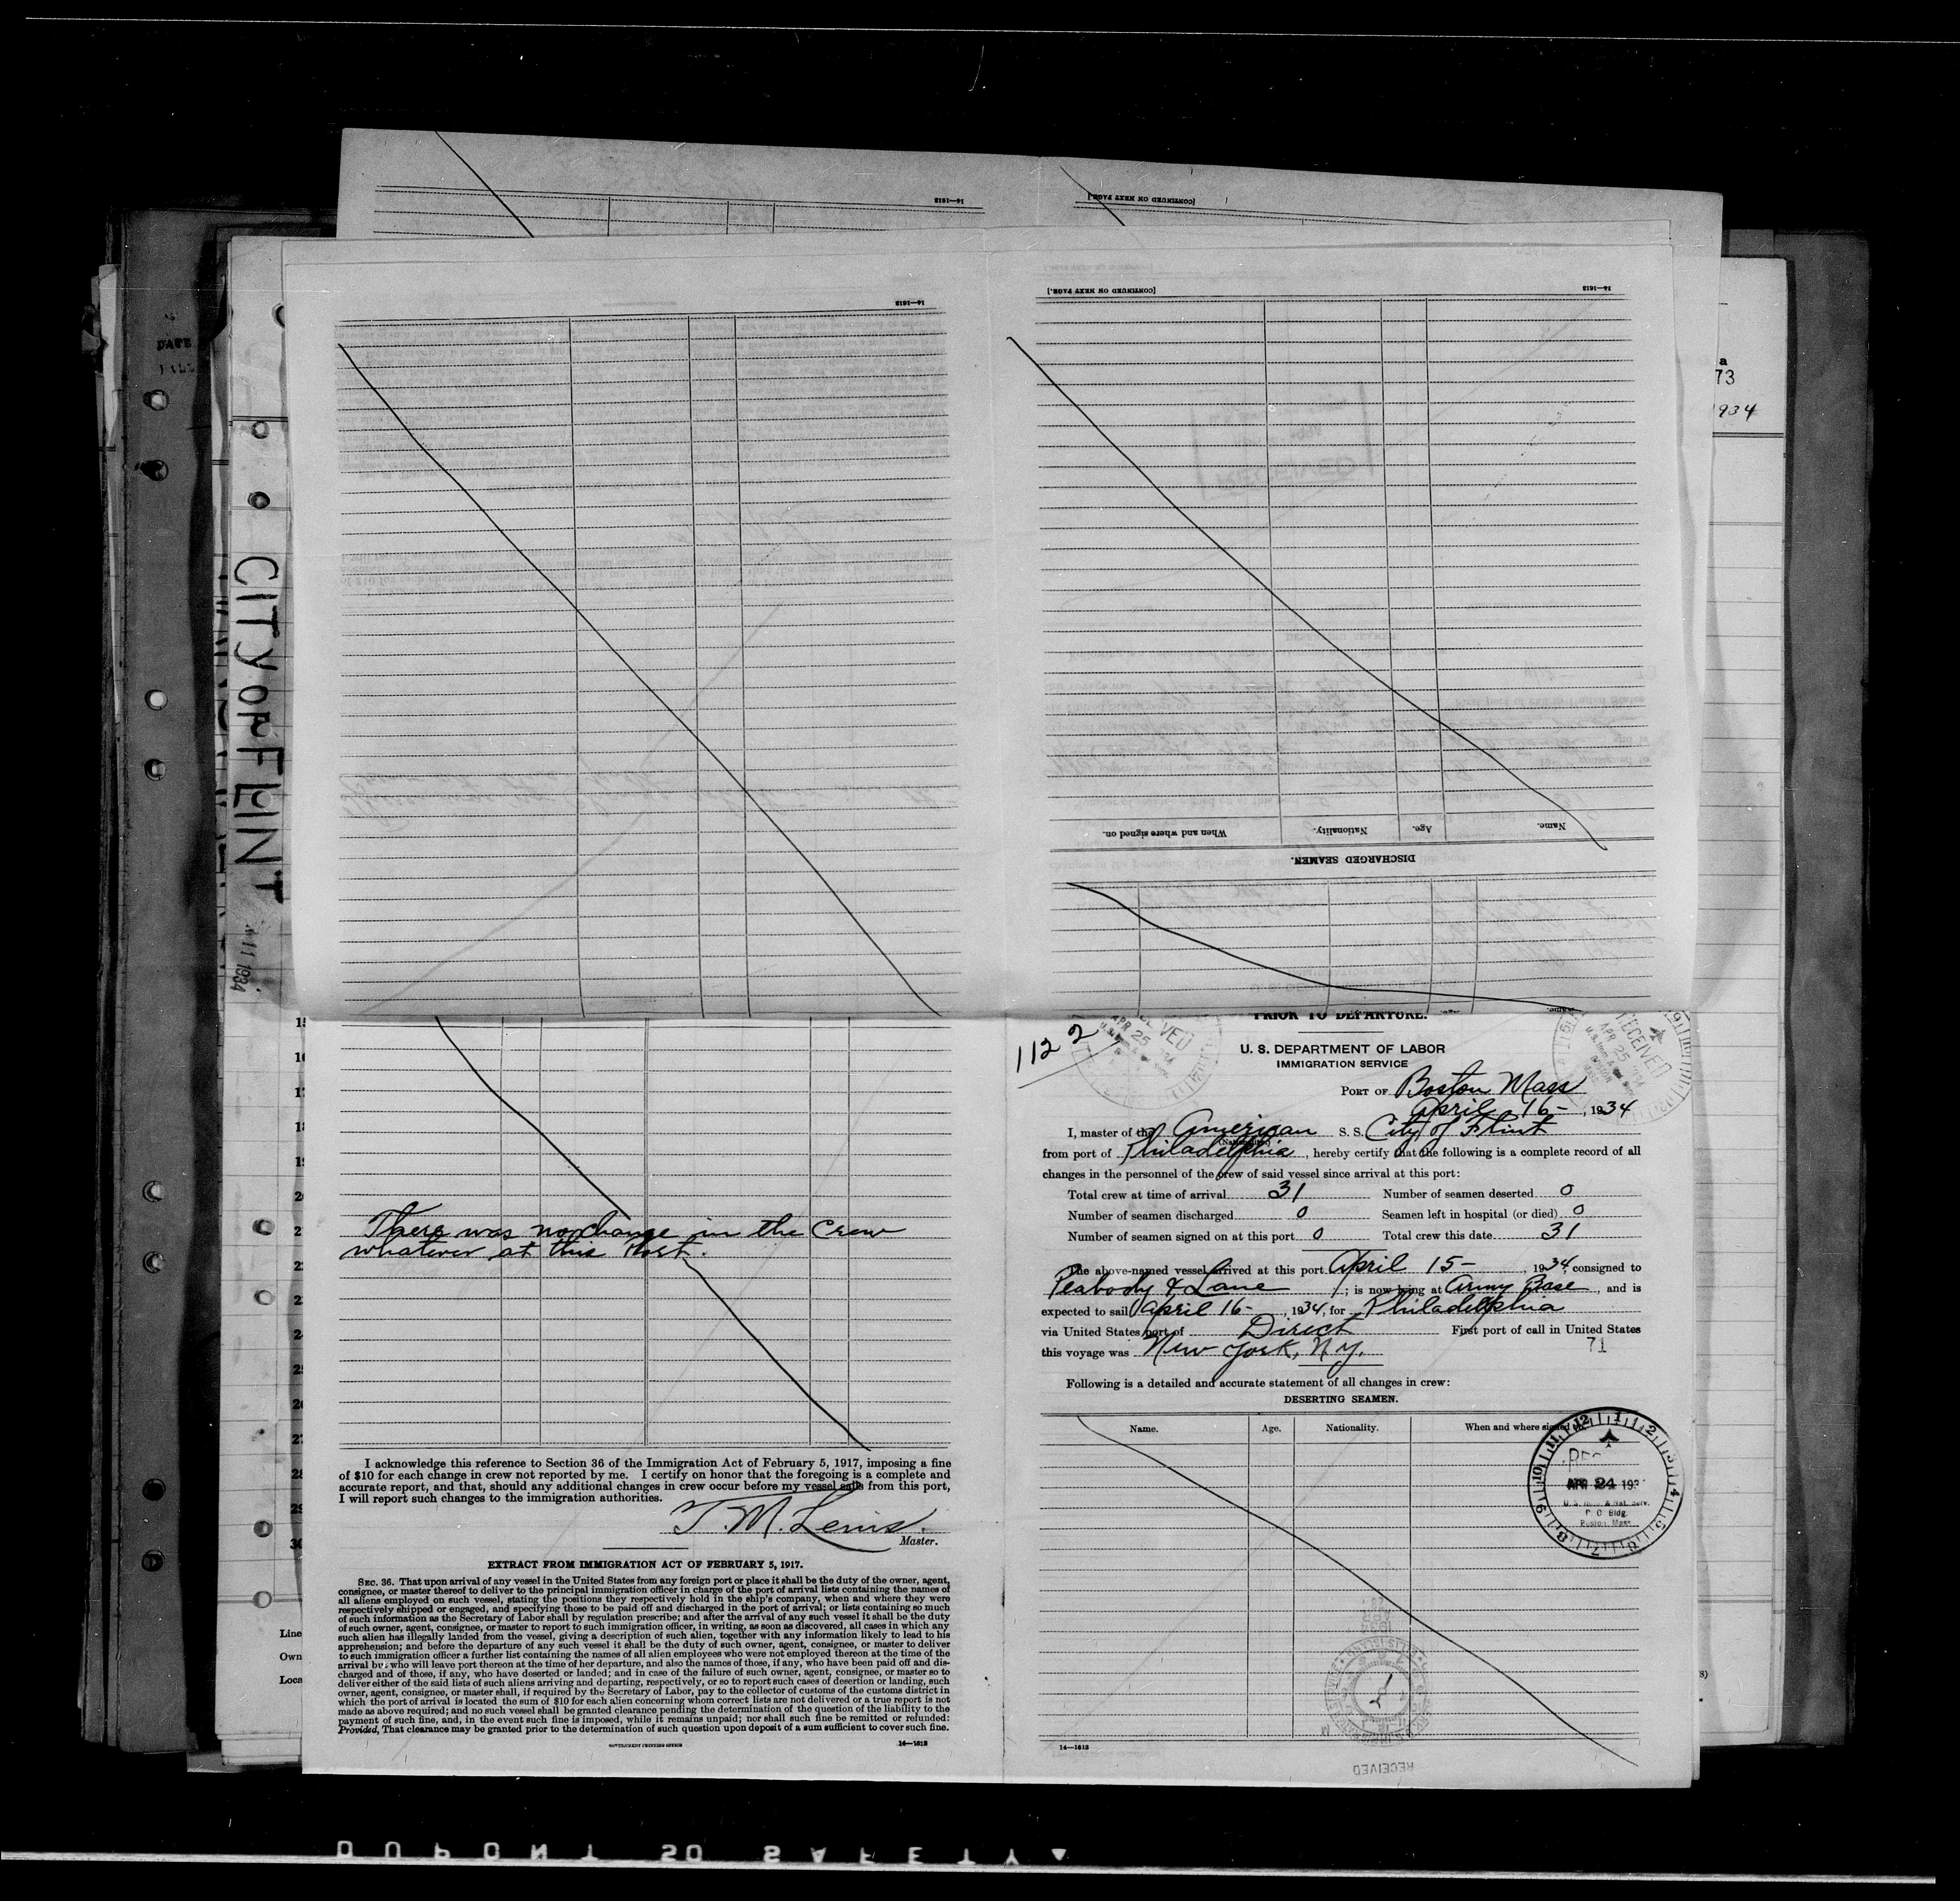 14—1613
[CONTINUED ON NEXT PAGE.]
14—1613
[CONTINUED ON NEXT PAGE.]
14—1613
DATE
a
73
1934
CITY OF FLINT
11 1934
Name.
Age.
Nationality.
When and where signed on.
DISCHARGED SEAMEN.
16
17
18
20
25
27
28
29
30
There was no change in the Crew
whatever at this Port.
I acknowledge this reference to Section 36 of the Immigration Act of February 5, 1917, imposing a fine
of $10 for each change in crew not reported by me. I certify on honor that the foregoing is a complete and
accurate report, and that, should any additional changes in crew occur before my vessel sails from this port,
I will report such changes to the immigration authorities.
T. M. Lewis.
Master.
EXTRACT FROM IMMIGRATION ACT OF FEBRUARY 5, 1917.
SEC. 36. That upon arrival of any vessel in the United States from any foreign port or place it shall be the duty of the owner, agent,
consignee, or master thereof to deliver to the principal immigration officer in charge of the port of arrival lists containing the names of
all aliens employed on such vessel, stating the positions they respectively hold in the ship's company, when and where they were
respectively shipped or engaged, and specifying those to be paid off and discharged in the port of arrival; or lists containing so much
of such information as the Secretary of Labor shall by regulation prescribe; and after the arrival of any such vessel it shall be the duty
of such owner, agent, consignee, or master to report to such immigration officer, in writing, as soon as discovered, all cases in which any
such alien has illegally landed from the vessel, giving a description of such alien, together with any information likely to lead to his
apprehension; and before the departure of any such vessel it shall be the duty of such owner, agent, consignee, or master to deliver
to such immigration officer a further list containing the names of all alien employees who were not employed thereon at the time of the
arrival but who will leave port thereon at the time of her departure, and also the names of those, if any, who have been paid off and dis-
charged and of those, if any, who have deserted or landed; and in case of the failure of such owner, agent, consignee, or master so to
deliver either of the said lists of such aliens arriving and departing, respectively, or so to report such cases of desertion or landing, such
owner, agent, consignee, or master shall, if required by the Secretary of Labor, pay to the collector of customs of the customs district in
which the port of arrival is located the sum of $10 for each alien concerning whom correct lists are not delivered or a true report is not
made as above required; and no such vessel shall be granted clearance pending the determination of the question of the liability to the
payment of such fine, and, in the event such fine is imposed, while it remains unpaid; nor shall such fine be remitted or refunded:
Provided, That clearance may be granted prior to the determination of such question upon deposit of a sum sufficient to cover such fine.
GOVERNMENT PRINTING OFFICE
14—1613
Line
Own
Loca
PRIOR TO DEPARTURE.
1122
RECEIVED
APR 25
RECEIVED
APR 25
U. S. DEPARTMENT OF LABOR
IMMIGRATION SERVICE
PORT OF Boston Mass
April 16- , 1934
I, master of the American S. S. City of Flint
(Nationality)
from port of Philadelphia, hereby certify that the following is a complete record of all
changes in the personnel of the crew of said vessel since arrival at this port:
Total crew at time of arrival 31 Number of seamen deserted 0
Number of seamen discharged 0 Seamen left in hospital (or died) 0
Number of seamen signed on at this port 0 Total crew this date 31
The above-named vessel arrived at this port April 15- , 1934, consigned to
Peabody & Lane ; is now lying at Army Base, and is
expected to sail April 16- , 1934, for Philadelphia
via United States port of Direct First port of call in United States
this voyage was New York, N.Y. 71
Following is a detailed and accurate statement of all changes in crew:
DESERTING SEAMEN.
Name. Age. Nationality. When and where signed
APR 24 193
U. S. Imm. & Nat. Serv.
P. O. Bldg.
Boston, Mass.
14—1613
RECEIVED
DUPONT SO SAFETY